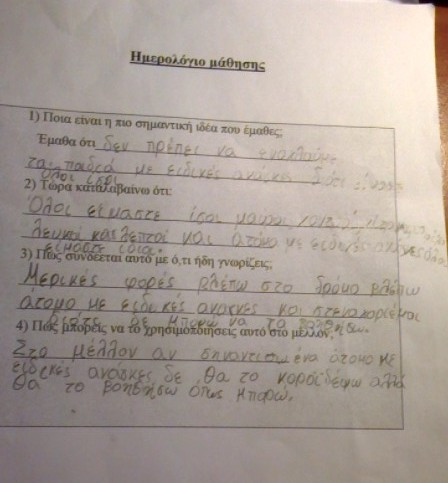 Ημερολόγιο μάθησης
1) Ποια είναι η πιο σημαντική ιδέα που έμαθες;
Έμαθα ότι δεν πρέπει να
τα παιδιά με ειδικές ανάγκες διότι είμαστε
όλοι ίσοι
2) Τώρα καταλαβαίνω ότι:
Όλοι είμαστε ίσοι μαύροι,
λευκοί και λεπτοί και άτομα με ειδικές ανάγκες όλοι
είμαστε ίδιοι.
3) Πώς συνδέεται αυτό με ό,τι ήδη γνωρίζεις;
Μερικές φορές βλέπω στο δρόμο βλέπω
άτομα με ειδικές ανάγκες και στεναχοριέμαι
διότι δε μπορώ να τα βοηθήσω.
4) Πώς μπορείς να το χρησιμοποιήσεις αυτό στο μέλλον;
Στο μέλλον αν συναντήσω ένα άτομο με
ειδικές ανάγκες δε θα το κοροϊδέψω αλλά
θα το βοηθήσω όπως μπορώ.